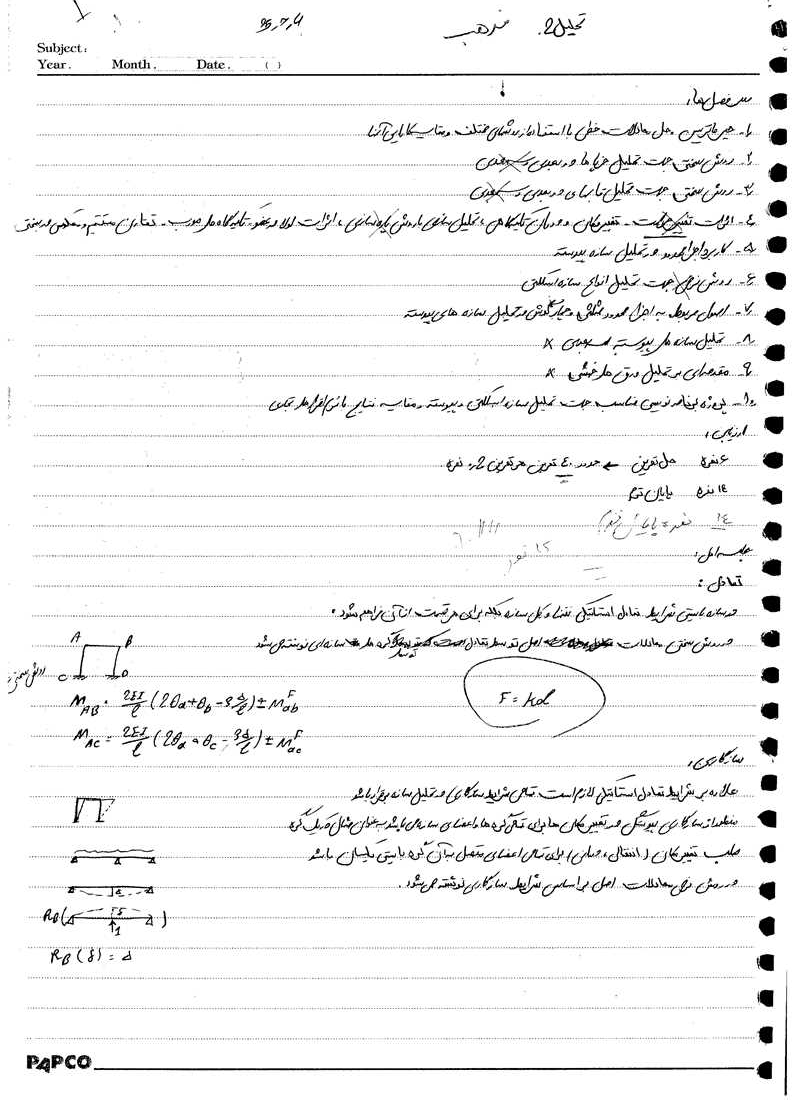 تحلیل 2. مذهب
95,7,4
Subject:
Year. Month. Date. ( )
سرفصل ها:
1- جبر ماتریس و حل معادلات خطی با استفاده از روشهای مختلف و مقایسه کارایی آنها
2- روش سختی جهت تحلیل خرپاها دو بعدی و سه بعدی
3- روش سختی جهت تحلیل قابهای دو بعدی و سه بعدی
4- اثرات تغییر حرارت - تغییر مکان و دوران تکیه گاهی، تحلیل سازه ای با روش پاره سازی، اثرات لولا در عضو، تکیه گاه های مورب - تقارن مستقیم و معکوس در سختی
5- کاربرد اجزا محدود در تحلیل سازه پیوسته
6- روش نرمی جهت تحلیل انواع سازه اسکلتی
7- اصول مربوط به اجزا محدود مثلثی و چهارگوش در تحلیل سازه های پیوسته
8- تحلیل سازه های پیوسته سه بعدی x
9- مقدمه ای بر تحلیل ورق های خمشی x
10- پروژه برنامه نویسی مناسب جهت تحلیل سازه اسکلتی و پیوسته و مقایسه نتایج با نرم افزارهای تجاری
ارزیابی:
6 نمره حل تمرین ← حدود 40 تمرین هر تمرین 0.2 نمره
14 نمره پایان ترم
14 نمره پایان ترم
جلسه اول:
تعادل:
در سازه بایستی شرایط تعادل استاتیکی نه تنها کل سازه بلکه برای هر قسمت از آن فراهم شود.
در روش سختی معادلات اصلی توسط تعادل گره ها سازه ای نوشته می شود
A B
C D
روش سختی
M_AB = 2EI/l (2θa+θb - 3Δ/l) ± M^F_ab
F = kd
M_AC = 2EI/l (2θa + θc - 3Δ/l) ± M^F_ac
سازگاری:
علاوه بر شرایط تعادل استاتیکی لازم است تمامی شرایط سازگاری در تحلیل سازه برقرار باشد
منظور از سازگاری پیوستگی در تغییر مکان ها برای تمامی گره ها و اعضای سازه می باشد به عنوان مثال در یک گره
صلب تغییر مکان (انتقال، دوران) برای تمامی اعضای متصل به آن گره بایستی یکسان باشد
در روش نرمی معادلات اصلی بر اساس شرایط سازگاری نوشته می شود.
Δ
R_B ( δ 1 )
R_B (δ) = Δ
PAPCO